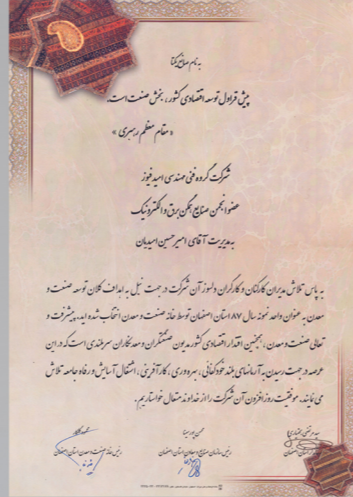 به نام صانع یکتا
پیش قراول توسعه اقتصادی کشور، بخش صنعت است.
« مقام معظم رهبری »
شرکت گروه فنی مهندسی امید فیوز
عضو انجمن صنایع همگن برق و الکترونیک
به مدیریت آقای امیرحسین امیدیان
به پاس تلاش مدیران کارکنان و کارگران دلسوز آن شرکت در جهت نیل به اهداف کلان توسعه صنعت و
معدن به عنوان واحد نمونه سال ۸۷ استان اصفهان توسط خانه صنعت و معدن انتخاب شده اید. پیشرفت و
تعالی صنعت و معدن، همچنین اقتدار اقتصادی کشور مدیون صنعتگران و معدنکاران سربلندی است که در این
عرصه در جهت رسیدن به آرمانهای بلند خودکفایی، بهره وری، کارآفرینی، اشتغال آسایش و رفاه جامعه تلاش
می نمایند. موفقیت روزافزون آن شرکت را از خداوند متعال خواستاریم.
رئیس سازمان صنایع و معادن استان اصفهان
رئیس خانه صنعت و معدن استان اصفهان